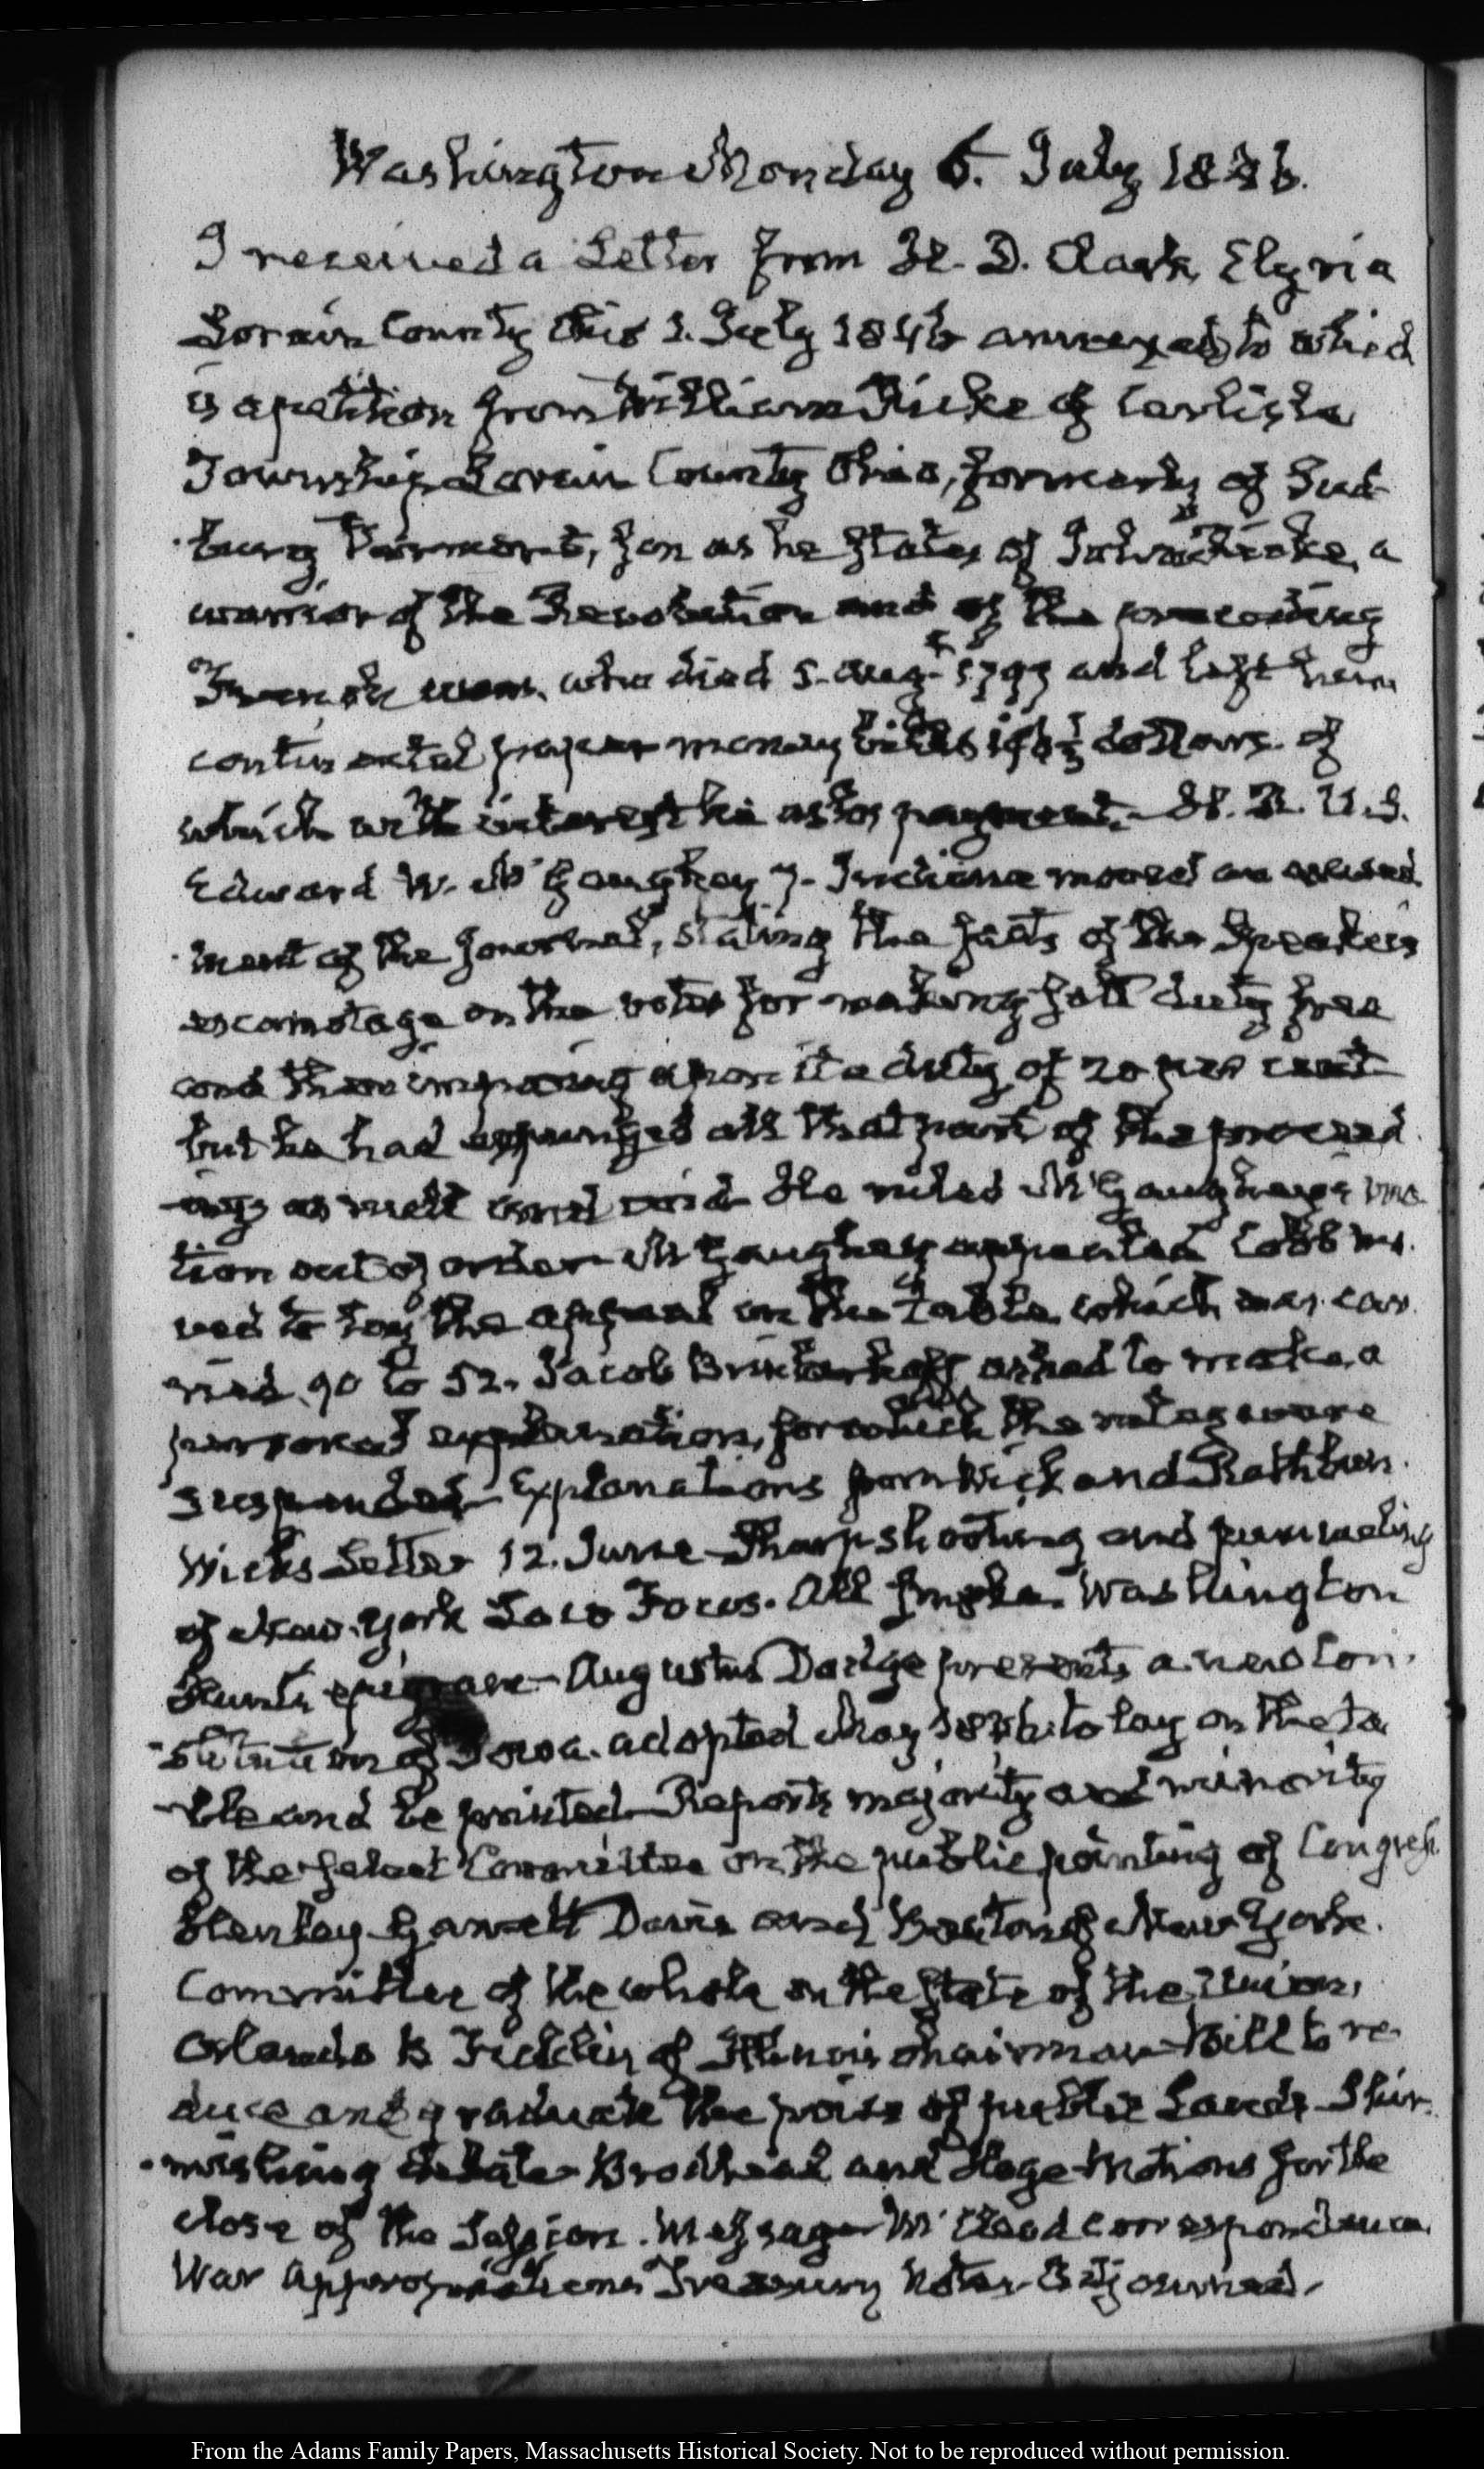 Washington Monday 6. July 1846.
I received a Letter from H. D. Clark, Elyria
Lorain County Ohio 1. July 1846 annexed to which
is a petition from William of Carlisle
Township Lorain County Ohio, formerly of Sud-
bury Vermont, son as he states of John a
warrior of the Revolution and of the preceding
French war. who died 5. Aug. 1797 and left him
continental paper money bills dollars. of
which with interest he asks payment. H. R. U.S.
Edward W. McGaughey 7. Indiana moved an amend-
ment of the Journal, stating the facts of the Speaker's
on the votes for making salt duty free
and then imposing upon it a duty of 20 per cent
but he had expunged all that part of the proceed-
ings as null and void. He ruled McGaughey's mo-
tion out of order McGaughey appealed Cobb mo-
ved to lay the appeal on the table. which was car-
ried 90 to 52. Jacob Brinkerhoff asked to make a
personal explanation, for which the rules were
suspended. Explanations from Wick and Rathbun.
Wicks Letter 12. June Sharp shooting and pummeling
of New-York Loco Focos. All smoke. Washington
Hunt's epigram Augustus Dodge presents a new Con-
stitution of Iowa. adopted May 1846. to lay on the ta-
ble and be printed. Reports majority and minority
of the select Committee on the public printing of Congress
Garrett Davis and of New York.
Committee of the whole on the State of the Union,
Orlando B. Ficklin of Illinois chairman Bill to re-
duce and graduate the price of public Lands Skir-
mishing debate Brodhead and Hoge Motions for the
close of the Session. Message McLeod correspondence.
War Appropriations Treasury Notes adjourned.
From the Adams Family Papers, Massachusetts Historical Society. Not to be reproduced without permission.